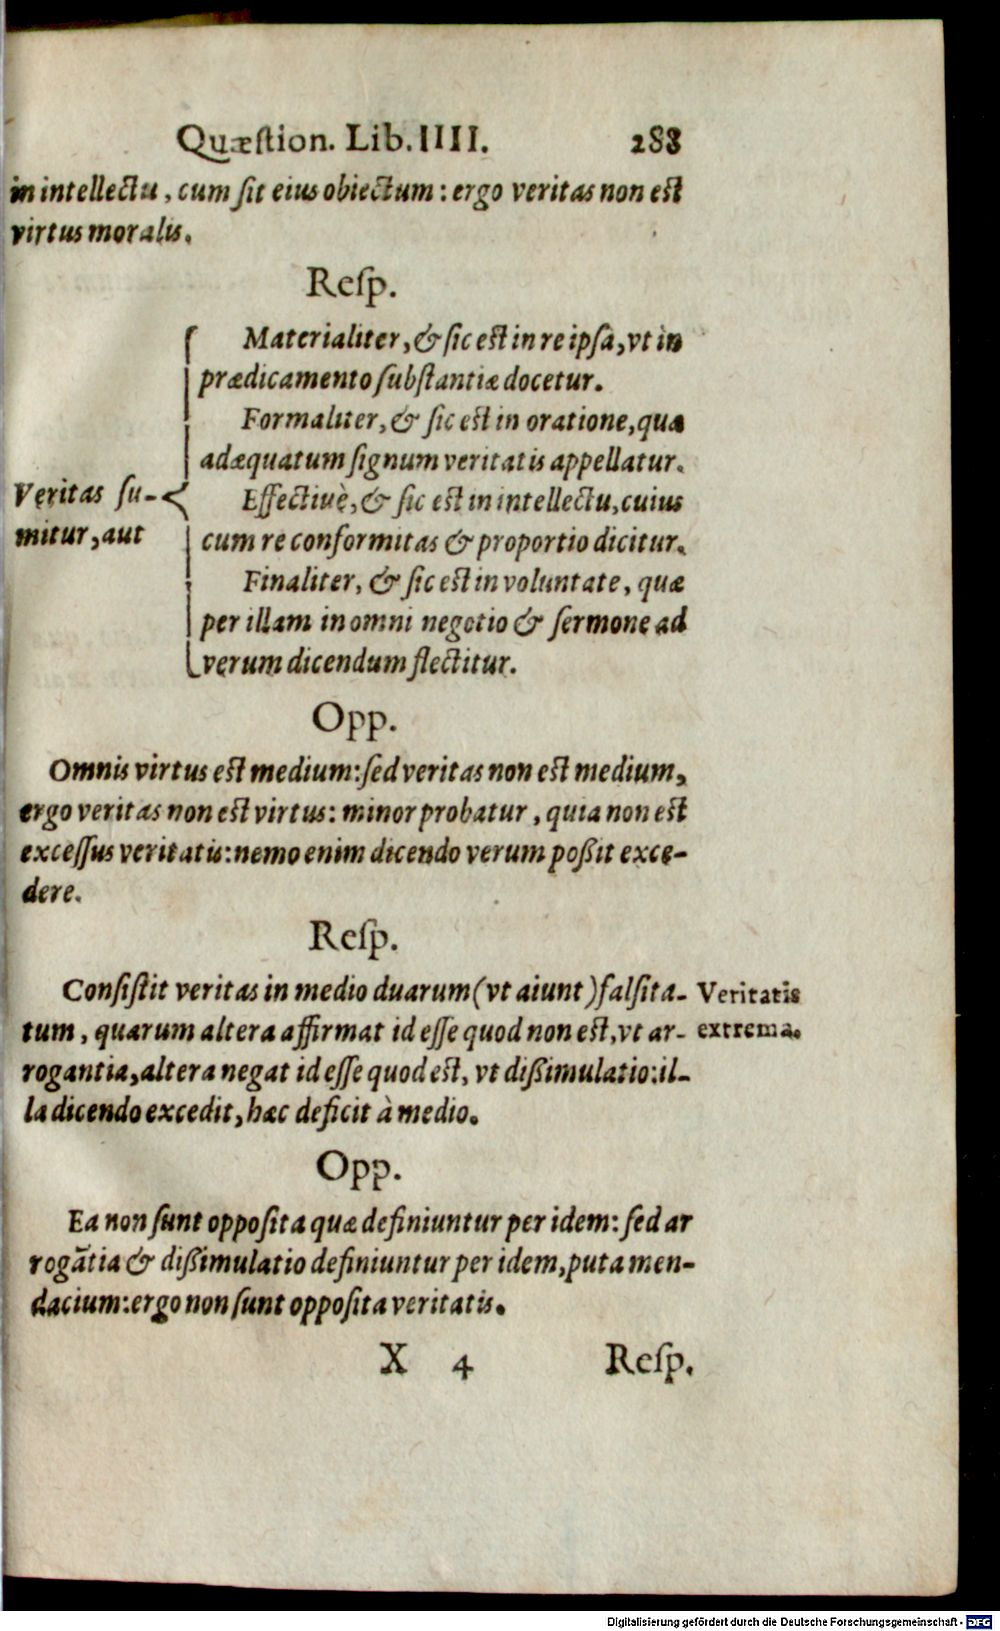 Quæſtion. Lib. IIII. 288
in intellectu, cum ſit eius obiectum: ergo veritas non est
virtus moralis.
Reſp.
Materialiter, & ſic est in re ipſa, vt in
prædicamento ſubſtantiæ docetur.
Formaliter, & ſic est in oratione, quæ
adæquatum ſignum veritatis appellatur.
Veritas ſu-
mitur, aut
Effectiuè, & ſic est in intellectu, cuius
cum re conformitas & proportio dicitur.
Finaliter, & ſic est in voluntate, quæ
per illam in omni negotio & ſermone ad
verum dicendum flectitur.
Opp.
Omnis virtus est medium: ſed veritas non est medium,
ergo veritas non est virtus: minor probatur, quia non est
exceſſus veritatis: nemo enim dicendo verum poßit exce-
dere.
Reſp.
Conſiſtit veritas in medio duarum (vt aiunt) falſita-
tum, quarum altera affirmat id eſſe quod non est, vt ar-
rogantia, altera negat id eſſe quod est, vt dißimulatio: il-
la dicendo excedit, hæc deficit à medio.
Veritatis
extrema.
Opp.
Ea non ſunt oppoſita quæ definiuntur per idem: ſed ar
rogãtia & dißimulatio definiuntur per idem, puta men-
dacium: ergo non ſunt oppoſita veritatis.
X 4 Reſp.
Digitalisierung gefördert durch die Deutsche Forschungsgemeinschaft - DFG